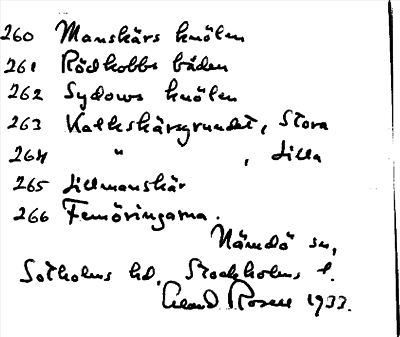 260 Manskärs knölen
261 Rödkobbs båden
262 Sydows knölen
263 Kalkskärsgrundet, Stora
264 " , Lilla
265 Lillmanskär
266 Femöringarna.
Nämdö sn,
Sotholms hd, Stockholms l.
Erland Rosell 1933.